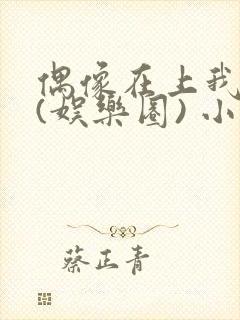 偶像在上我
(娱樂圈) 小
蔡正青